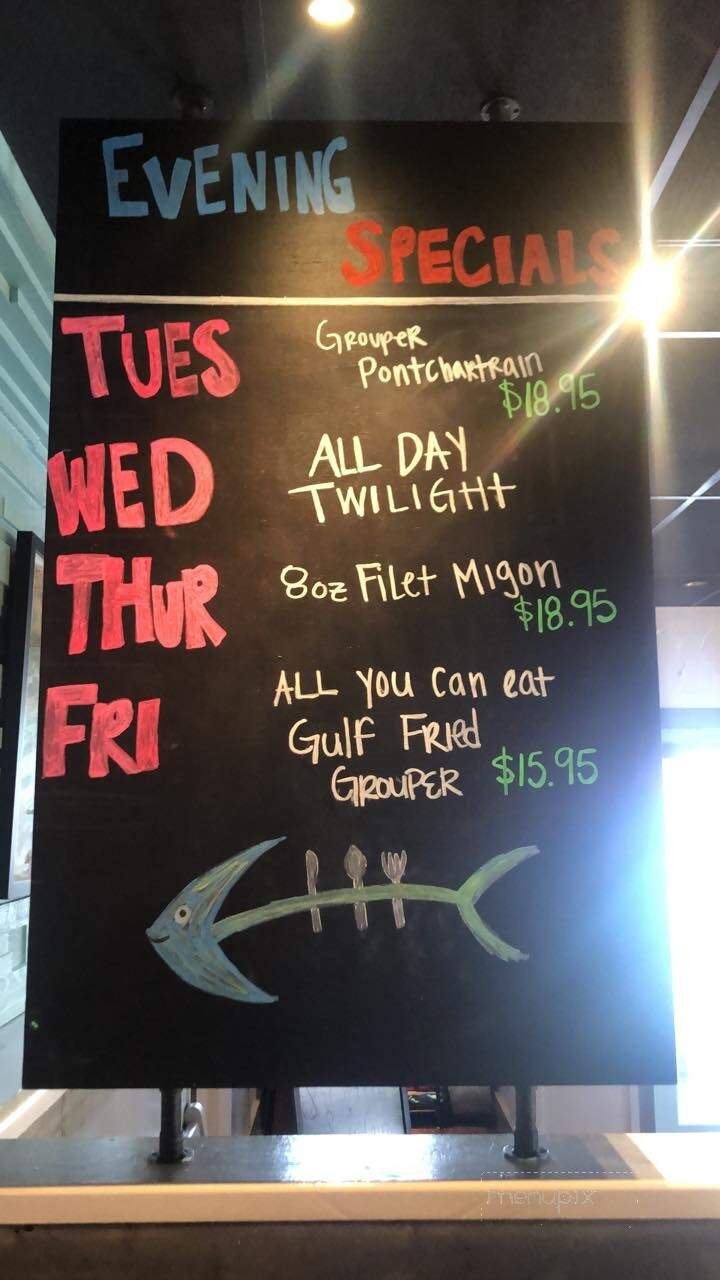 EVENING
SPECIALS
TUES
GROUPER
PontChartRain
$18.95
WED
ALL DAY
TWILIGHT
THUR
8oz FiLet Migon
$18.95
FRI
ALL you Can eat
Gulf FRied
GROUPER $15.95
menupix